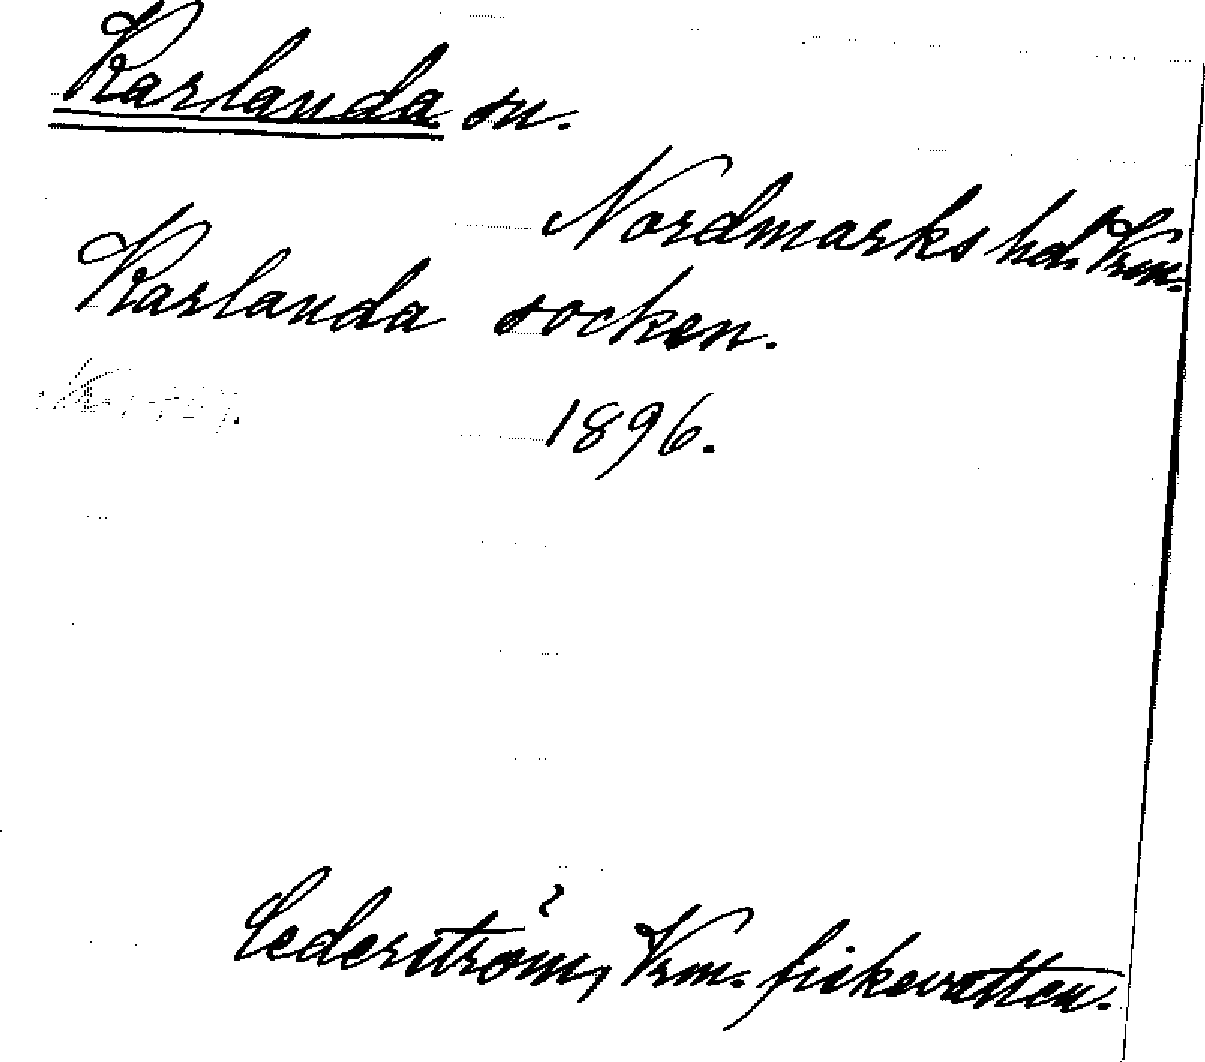 Karlanda sn.
Nordmarks hd. Vrm.
Karlanda socken.
1896.
Cederström, Vrm. fiskevatten.